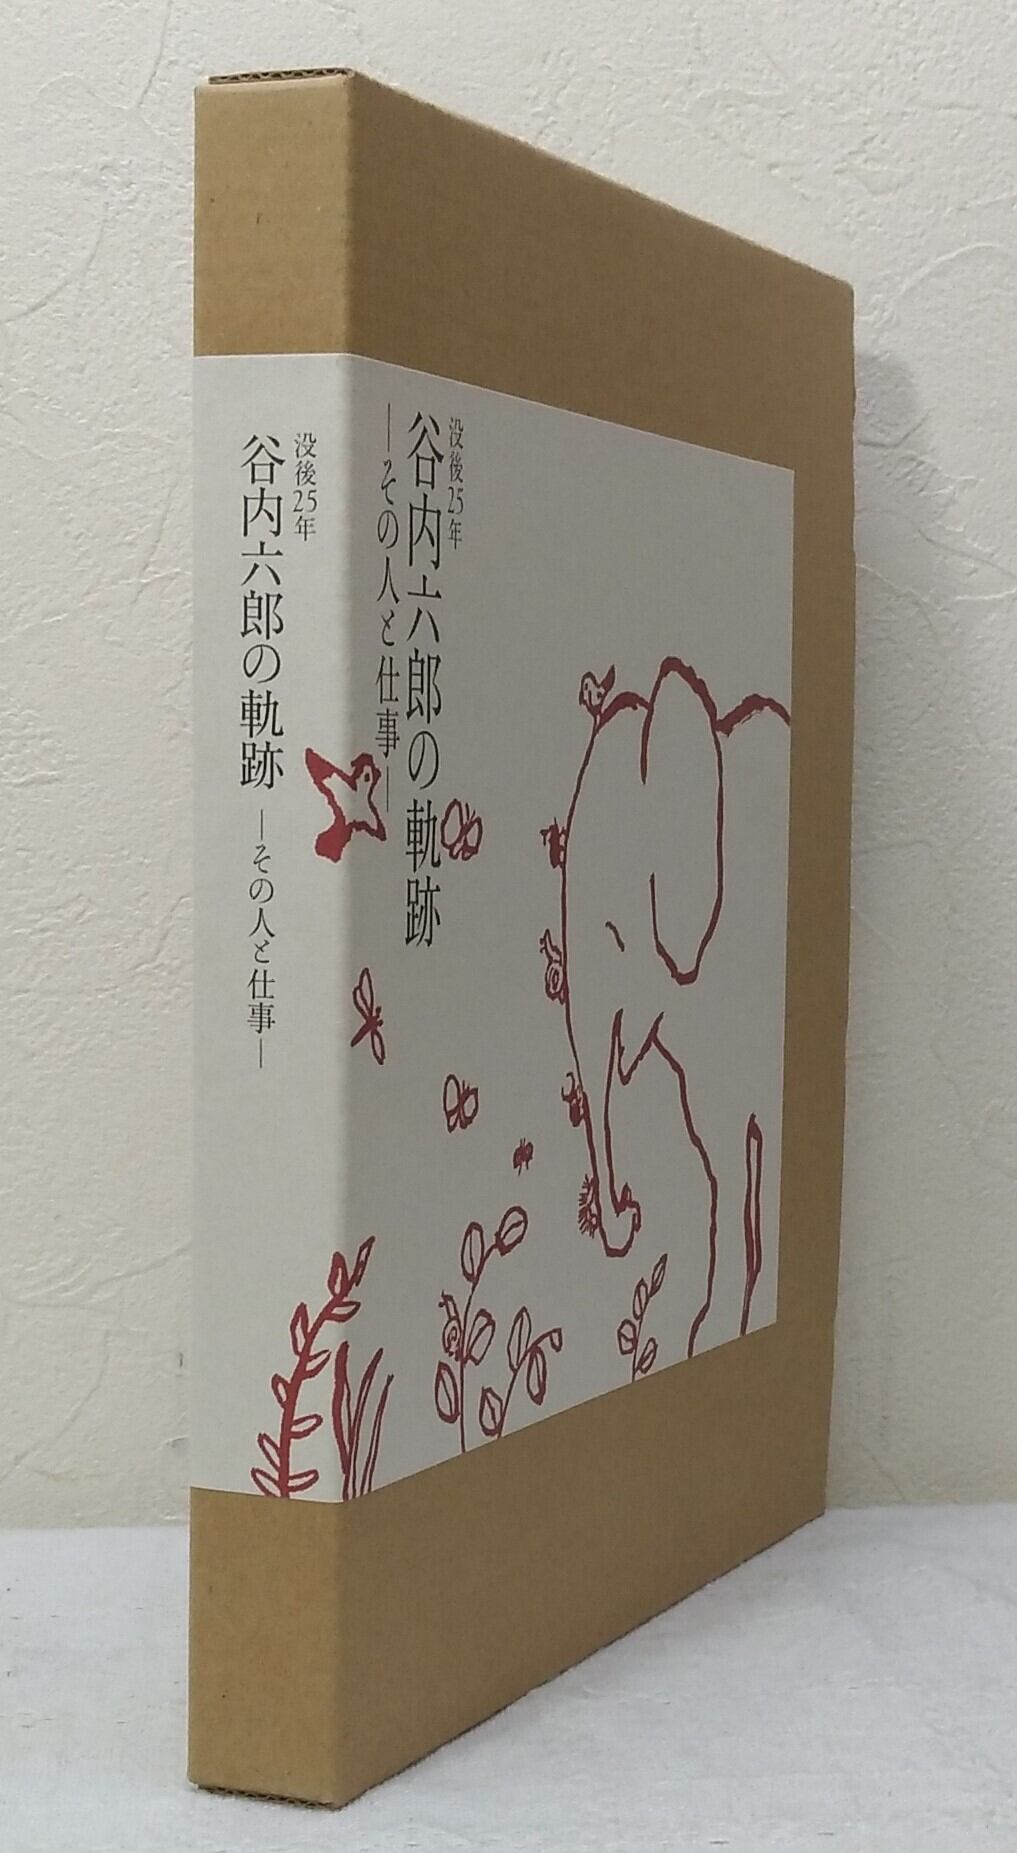 没後25年
谷内六郎の軌跡
―その人と仕事―
没後25年
谷内六郎の軌跡
―その人と仕事―